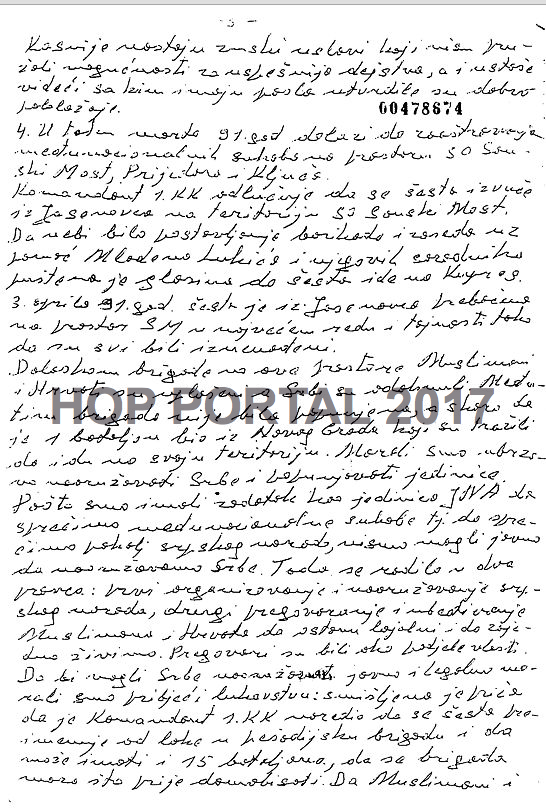 - 3 -
Kasnije nastaju zimski uslovi koji nisu pru-
žali mogućnosti za uspešnija dejstva, a i ustaše
videći sa kim imaju posla utvrdile su dobro
položaje.
00478674
4. U toku marta 91. god dolazi do zaoštravanja
međunacionalnih sukoba na prostoru SO San-
ski Most, Prijedora i Ključa.
Komandant 1.KK odlučuje da se šesta izvuče
iz Jasenovca na teritoriju SO Sanski Most.
Da nebi bilo postavljanja barikada i zaseda uz
pomoć Mlađena Lukića i njegovih saradnika
puštena je glasina da šesta ide na Kupres.
3. aprila 91. god. šesta je iz Jasenovca prebačena
na prostor SM u najvećem redu i tajnosti tako
da su svi bili iznenađeni.
Dolaskom brigade na ove prostore Muslimani
i Hrvati su Srbi su odahnuli. Među-
tim brigada nije bila popunjena, a skoro da
je 1 bataljon bio iz Novog Grada koji su tražili
da idu na svoju teritoriju. Morali smo ubrza-
no naoružavati Srbe i popunjavati jedinicu.
Pošto smo imali zadatak kao jedinica JNA da
sprečimo međunacionalne sukobe tj. da spre-
čimo pokolj srpskog naroda, nismo mogli javno
da naoružavamo Srbe. Tada se radilo u dva
pravca: prvi organizovanje i naoružavanje srp-
skog naroda, drugi pregovaranje i ubeđivanje
Muslimana i Hrvata da ostanu lojalni i da zaje-
dno živimo. Pregovori su bili oko podjele vlasti.
Da bi mogli Srbe naoružavati javno i legalno mo-
rali smo pribjeći lukavstvu: smišljena je priča
da je Komandant 1.KK naredio da se šesta pre-
imenuje od lake u pešadijsku brigadu i da
može imati i 15 bataljona, da se brigada
mora što prije domobilisati. Da Muslimani i
HOP PORTAL 2017